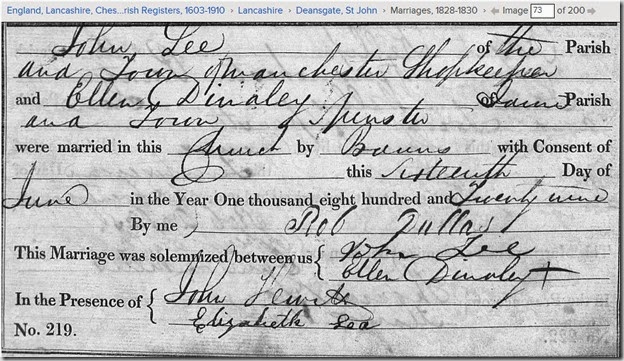 England, Lancashire, Ches...rish Registers, 1603-1910 › Lancashire › Deansgate, St John › Marriages, 1828-1830 › Image 73 of 200
John Lee of the Parish
and Town of Manchester Shopkeeper
and Ellen Dingley of Same Parish
and Town Spinster
were married in this Church by Banns with Consent of
this Sixteenth Day of
June in the Year One thousand eight hundred and Twenty nine
By me Rob Dallas
This Marriage was solemnized between us { John Lee
Ellen Dingley +
In the Presence of { John
Elizabeth Lea
No. 219.